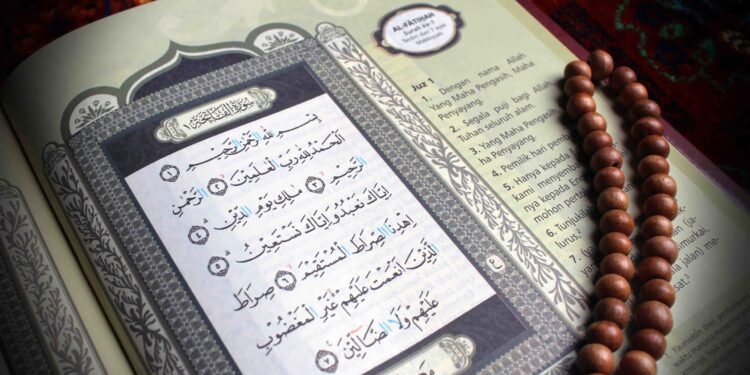 سُورَةُ الْفَاتِحَةِ
بِسْمِ اللَّهِ الرَّحْمَٰنِ الرَّحِيمِ ١
الْحَمْدُ لِلَّهِ رَبِّ الْعَالَمِينَ ٢ الرَّحْمَٰنِ
الرَّحِيمِ ٣ مَالِكِ يَوْمِ الدِّينِ ٤
إِيَّاكَ نَعْبُدُ وَإِيَّاكَ نَسْتَعِينُ ٥
اهْدِنَا الصِّرَاطَ الْمُسْتَقِيمَ ٦ صِرَاطَ
الَّذِينَ أَنْعَمْتَ عَلَيْهِمْ غَيْرِ الْمَغْضُوبِ
عَلَيْهِمْ وَلَا الضَّالِّينَ ٧
AL-FATIHAH
Surah ke-1
Terdiri dari 7 ayat
Makkiyyah
Juz 1
1. Dengan nama Allah
Yang Maha Pengasih, Maha
Penyayang.
2. Segala puji bagi Allah
Tuhan seluruh alam.
3. Yang Maha Pengasih,
ha Penyayang.
4. Pemilik hari
5. Hanya kepada
kami
nya kepada
mohon
6.
lurus.
7. (ja-
dimurkai,
jalan) me-